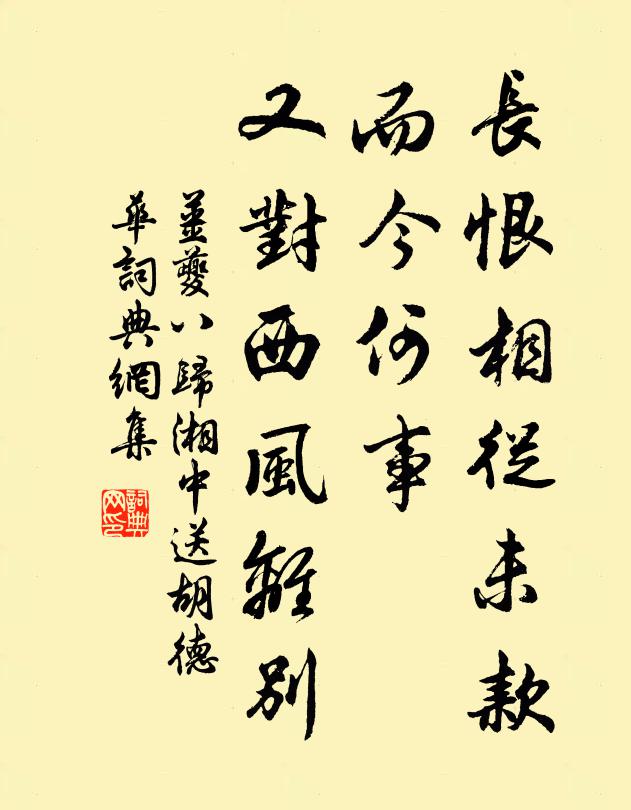 長恨相從未款
而今何事
又對西風離別
姜夔八歸湘中送胡德
華詞典網集
詞典
网印